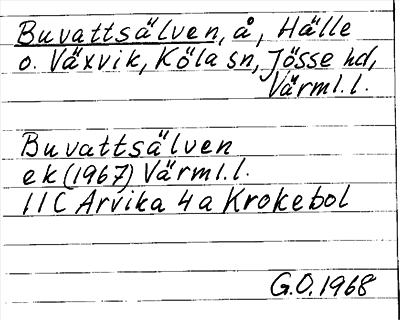 Buvattsälven, å, Hälle
o. Växvik, Köla sn, Jösse hd,
Värml. l.
Buvattsälven
ek (1967) Värml. l.
11C Arvika 4a Krokebol
G.O. 1968